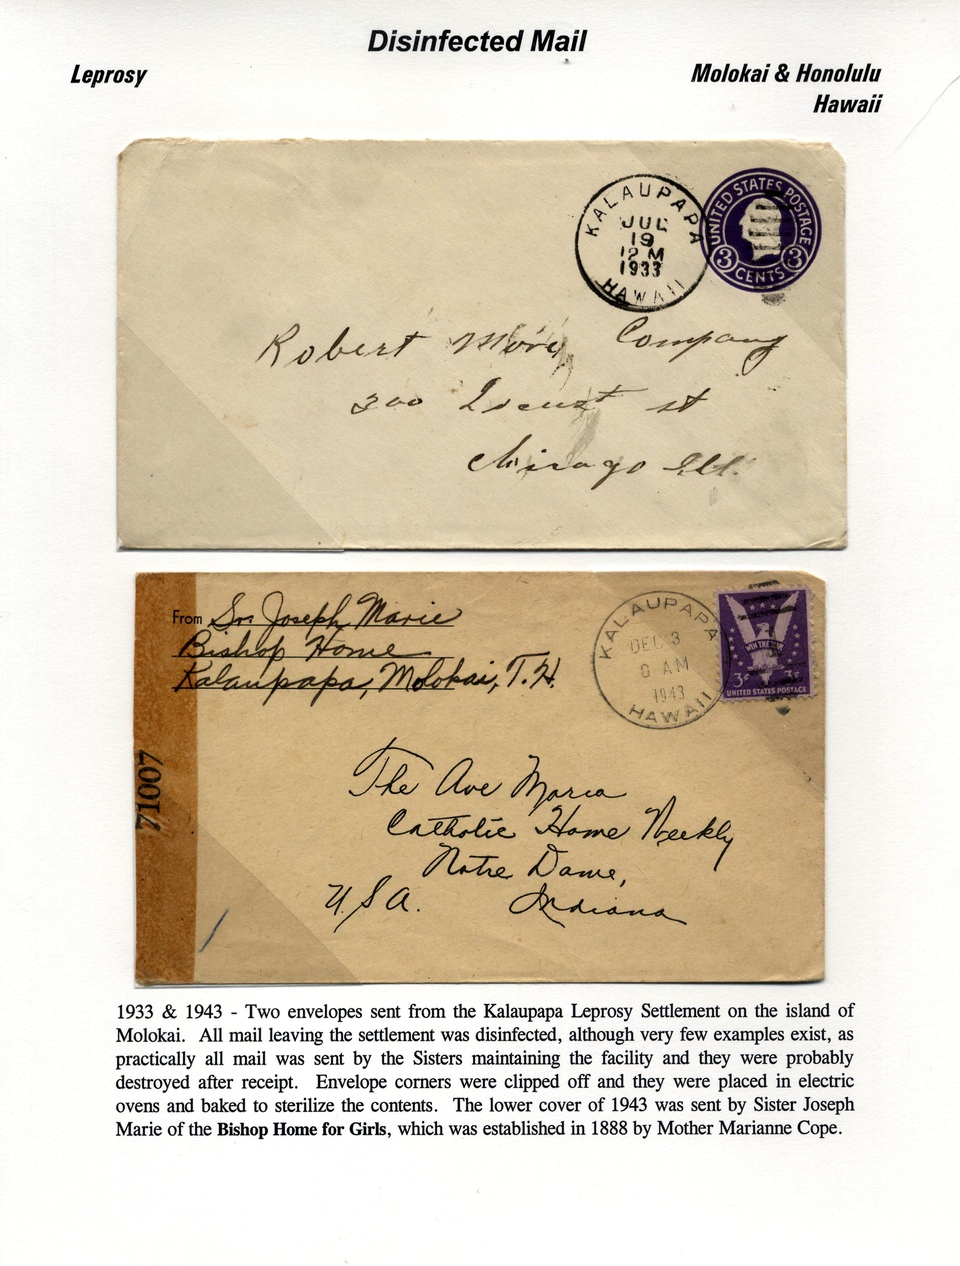 Disinfected Mail
Leprosy
Molokai & Honolulu
Hawaii
KALAUPAPA
JUL
19
12 M
1933
HAWAII
UNITED STATES POSTAGE
3 CENTS 3
Robert Company
300 Locust st
Chicago Ill.
From Sr. Joseph Marie
Bishop Home
Kalaupapa, Molokai, T.H.
KALAUPAPA
DEC 3
8 AM
1943
HAWAII
WIN THE WAR
3c 3c
UNITED STATES POSTAGE
71007
The Ave Maria
Catholic Home Weekly
Notre Dame,
U.S.A. Indiana
1933 & 1943 - Two envelopes sent from the Kalaupapa Leprosy Settlement on the island of
Molokai. All mail leaving the settlement was disinfected, although very few examples exist, as
practically all mail was sent by the Sisters maintaining the facility and they were probably
destroyed after receipt. Envelope corners were clipped off and they were placed in electric
ovens and baked to sterilize the contents. The lower cover of 1943 was sent by Sister Joseph
Marie of the Bishop Home for Girls, which was established in 1888 by Mother Marianne Cope.